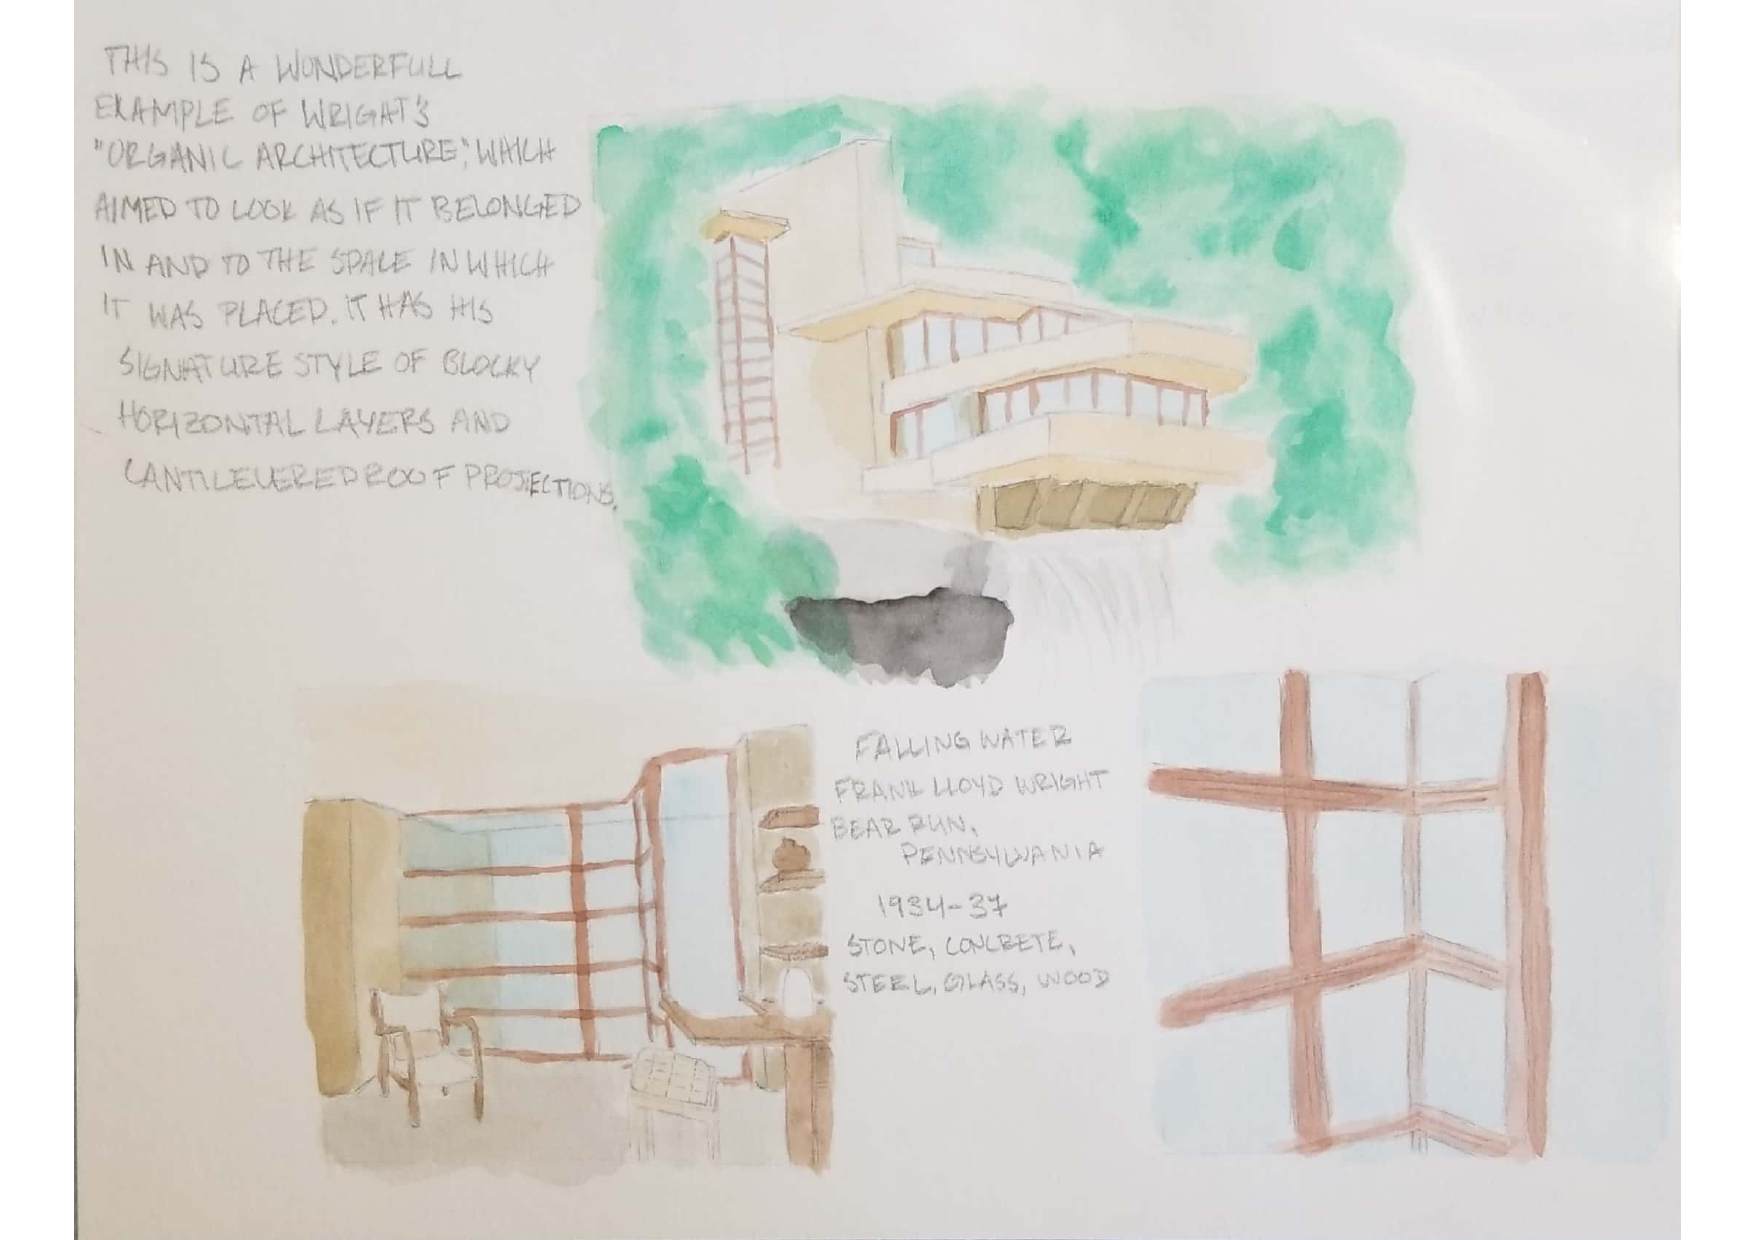 THIS IS A WONDERFULL
EXAMPLE OF WRIGHT'S
"ORGANIC ARCHITECTURE", WHICH
AIMED TO LOOK AS IF IT BELONGED
IN AND TO THE SPACE IN WHICH
IT WAS PLACED. IT HAS HIS
SIGNATURE STYLE OF BLOCKY
HORIZONTAL LAYERS AND
CANTILEVERED ROOF PROJECTIONS.
FALLING WATER
FRANK LLOYD WRIGHT
BEAR RUN,
PENNSYLVANIA
1934-37
STONE, CONCRETE,
STEEL, GLASS, WOOD